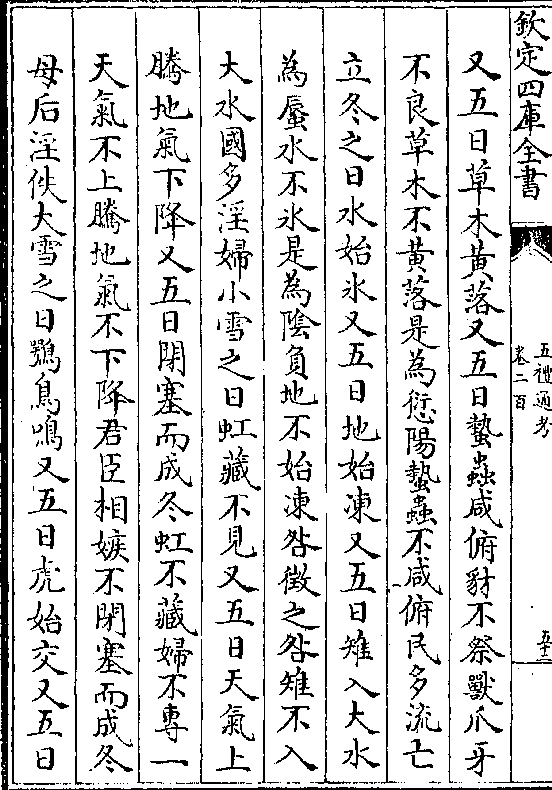 欽定四庫全書
五禮通考
卷二百
五十一
又五日草木黃落又五日蟄蟲咸俯豺不祭獸爪牙
不良草木不黃落是為愆陽蟄蟲不咸俯民多流亡
立冬之日水始氷又五日地始凍又五日雉入大水
為蜃水不氷是為隂負地不始凍咎徵之咎雉不入
大水國多淫婦小雪之日虹藏不見又五日天氣上
騰地氣下降又五日閉塞而成冬虹不藏婦不専一
天氣不上騰地氣不下降君臣相嫉不閉塞而成冬
母后淫佚大雪之日鶡鳥鳴又五日虎始交又五日